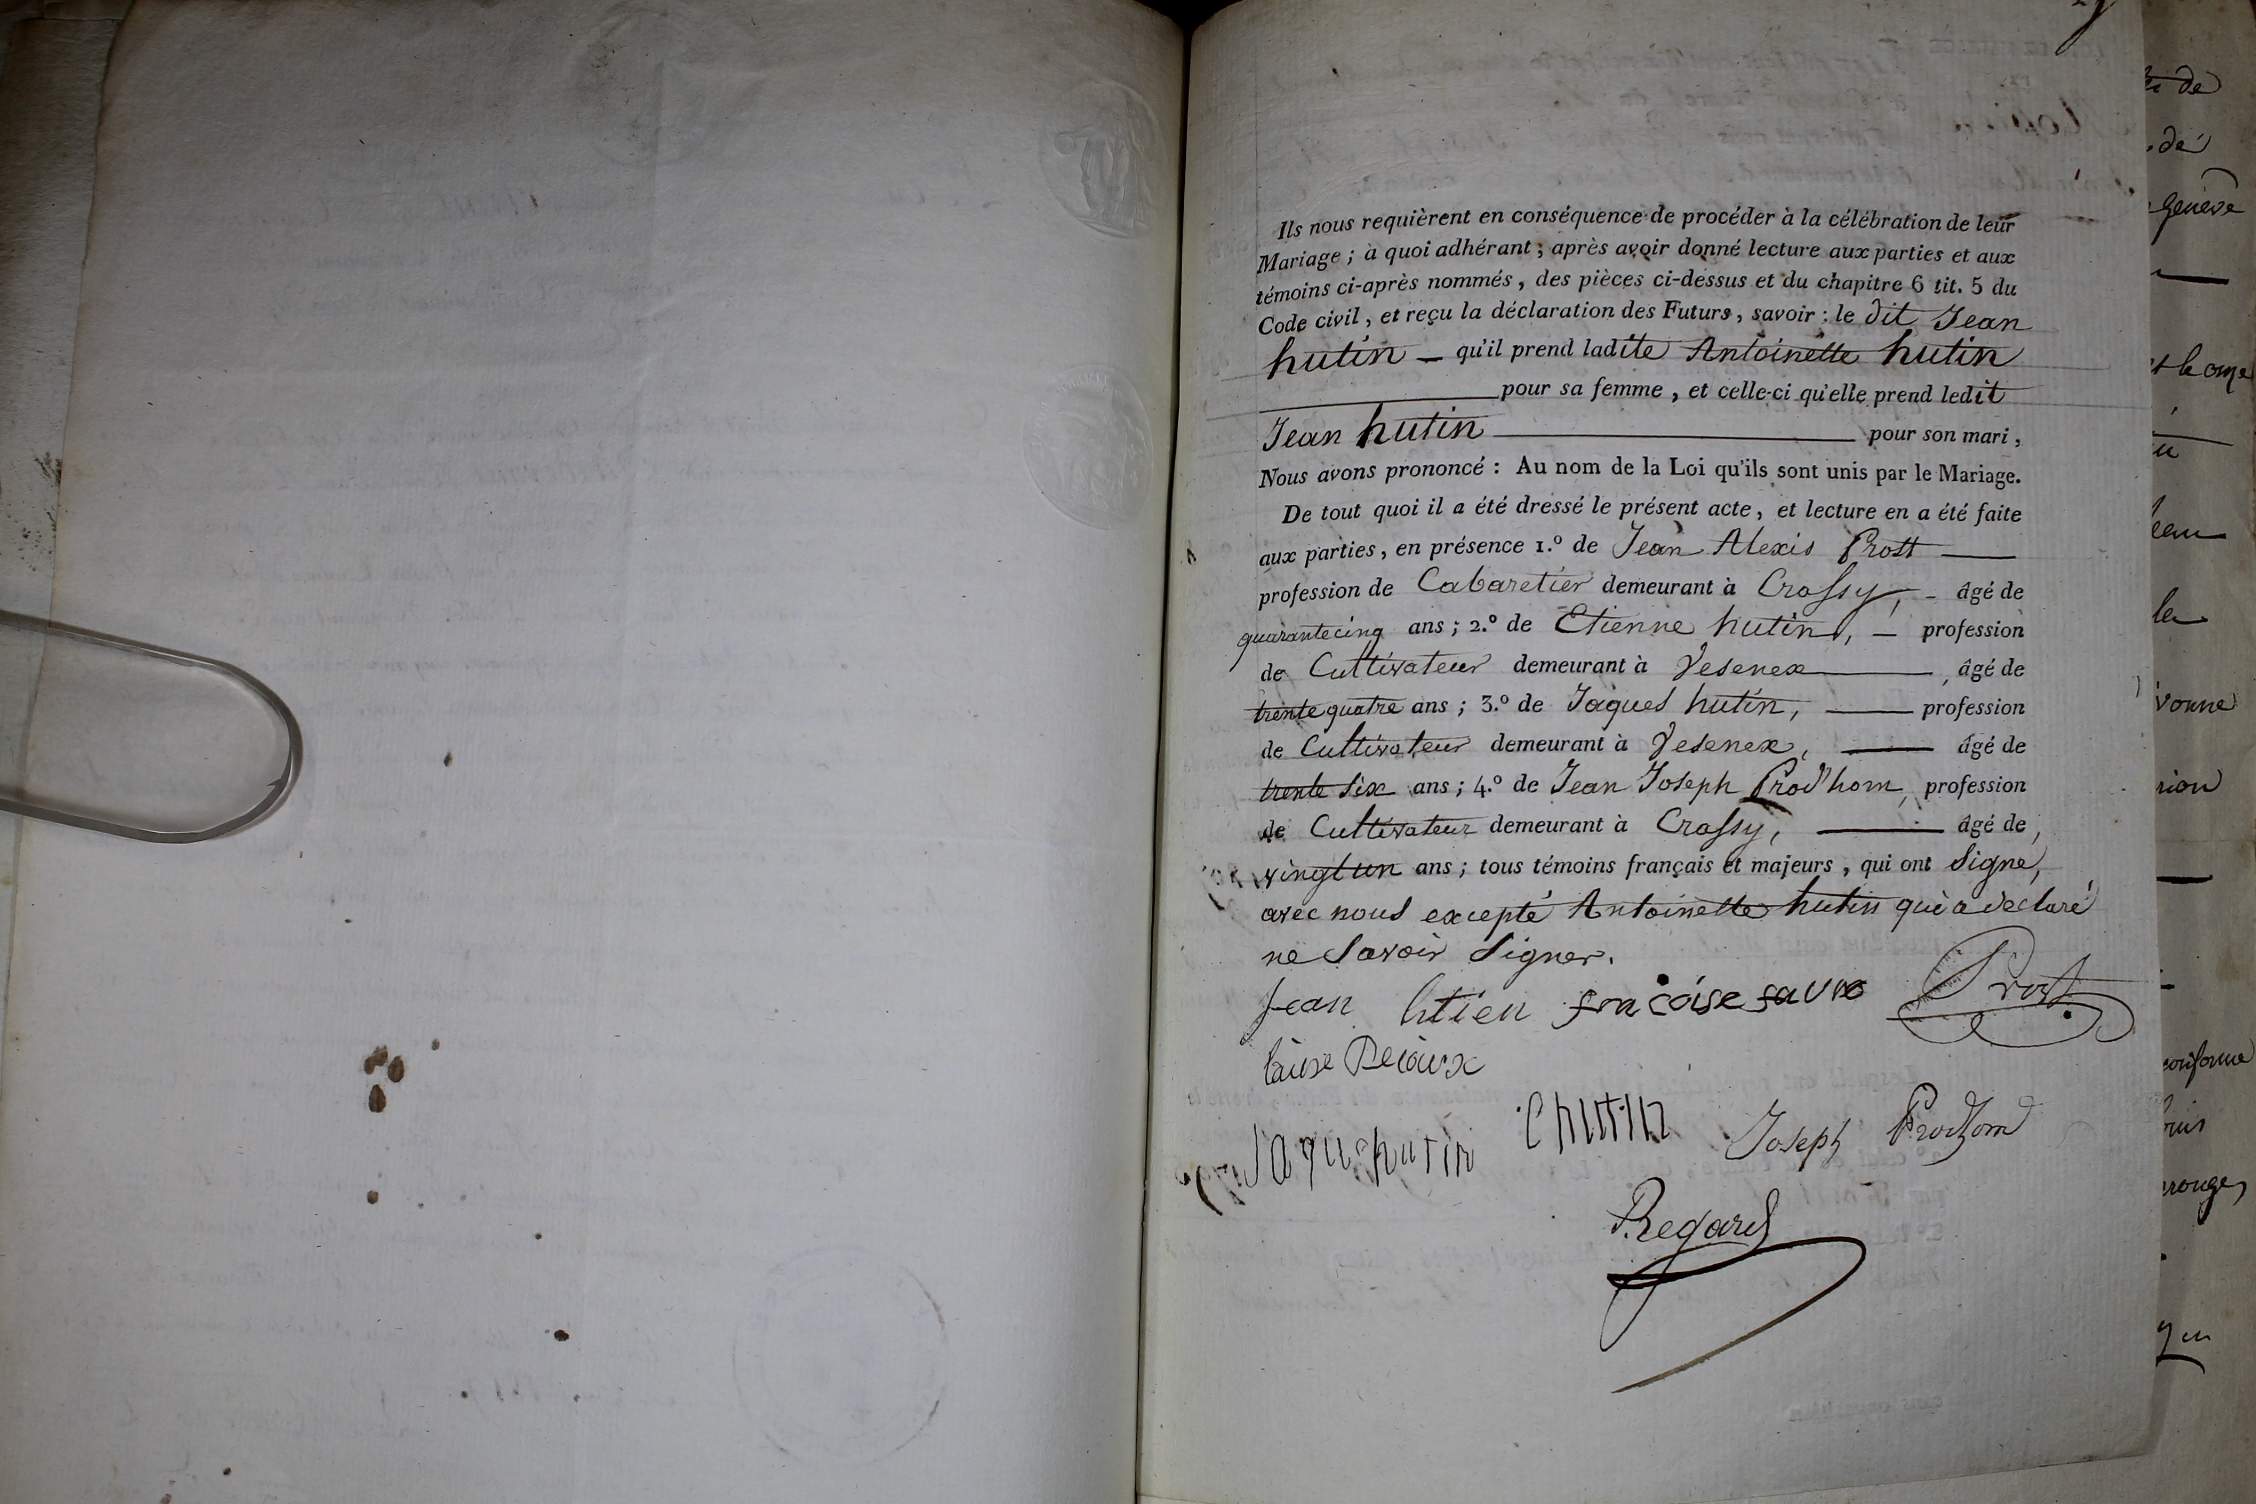 Ils nous requièrent en conséquence de procéder à la célébration de leur
Mariage ; à quoi adhérant ; après avoir donné lecture aux parties et aux
témoins ci-après nommés, des pièces ci-dessus et du chapitre 6 tit. 5 du
Code civil, et reçu la déclaration des Futurs, savoir : le dit Jean
hutin — qu'il prend ladite Antoinette hutin
pour sa femme, et celle-ci qu'elle prend ledit
Jean hutin pour son mari,
Nous avons prononcé : Au nom de la Loi qu'ils sont unis par le Mariage.
De tout quoi il a été dressé le présent acte, et lecture en a été faite
aux parties, en présence 1.º de Jean Alexis Prost
profession de Cabaretier demeurant à Crassy, - âgé de
quarantecinq ans ; 2.º de Etienne hutin, — profession
de Cultivateur demeurant à Vesenex, âgé de
trente quatre ans ; 3.º de Jaques hutin, — profession
de Cultivateur demeurant à Vesenex, — âgé de
trente six ans ; 4.º de Jean Joseph Prod'hom, profession
de Cultivateur demeurant à Crassy, — âgé de
vingt un ans ; tous témoins français et majeurs, qui ont Signé,
avec nous excepté Antoinette hutin qui a déclaré
ne Savoir Signer.
Jean htien francoise favre Prost
Jaquehutin Chutin Joseph Prodhom
Regard
de
de
Genève
vonne
conforme